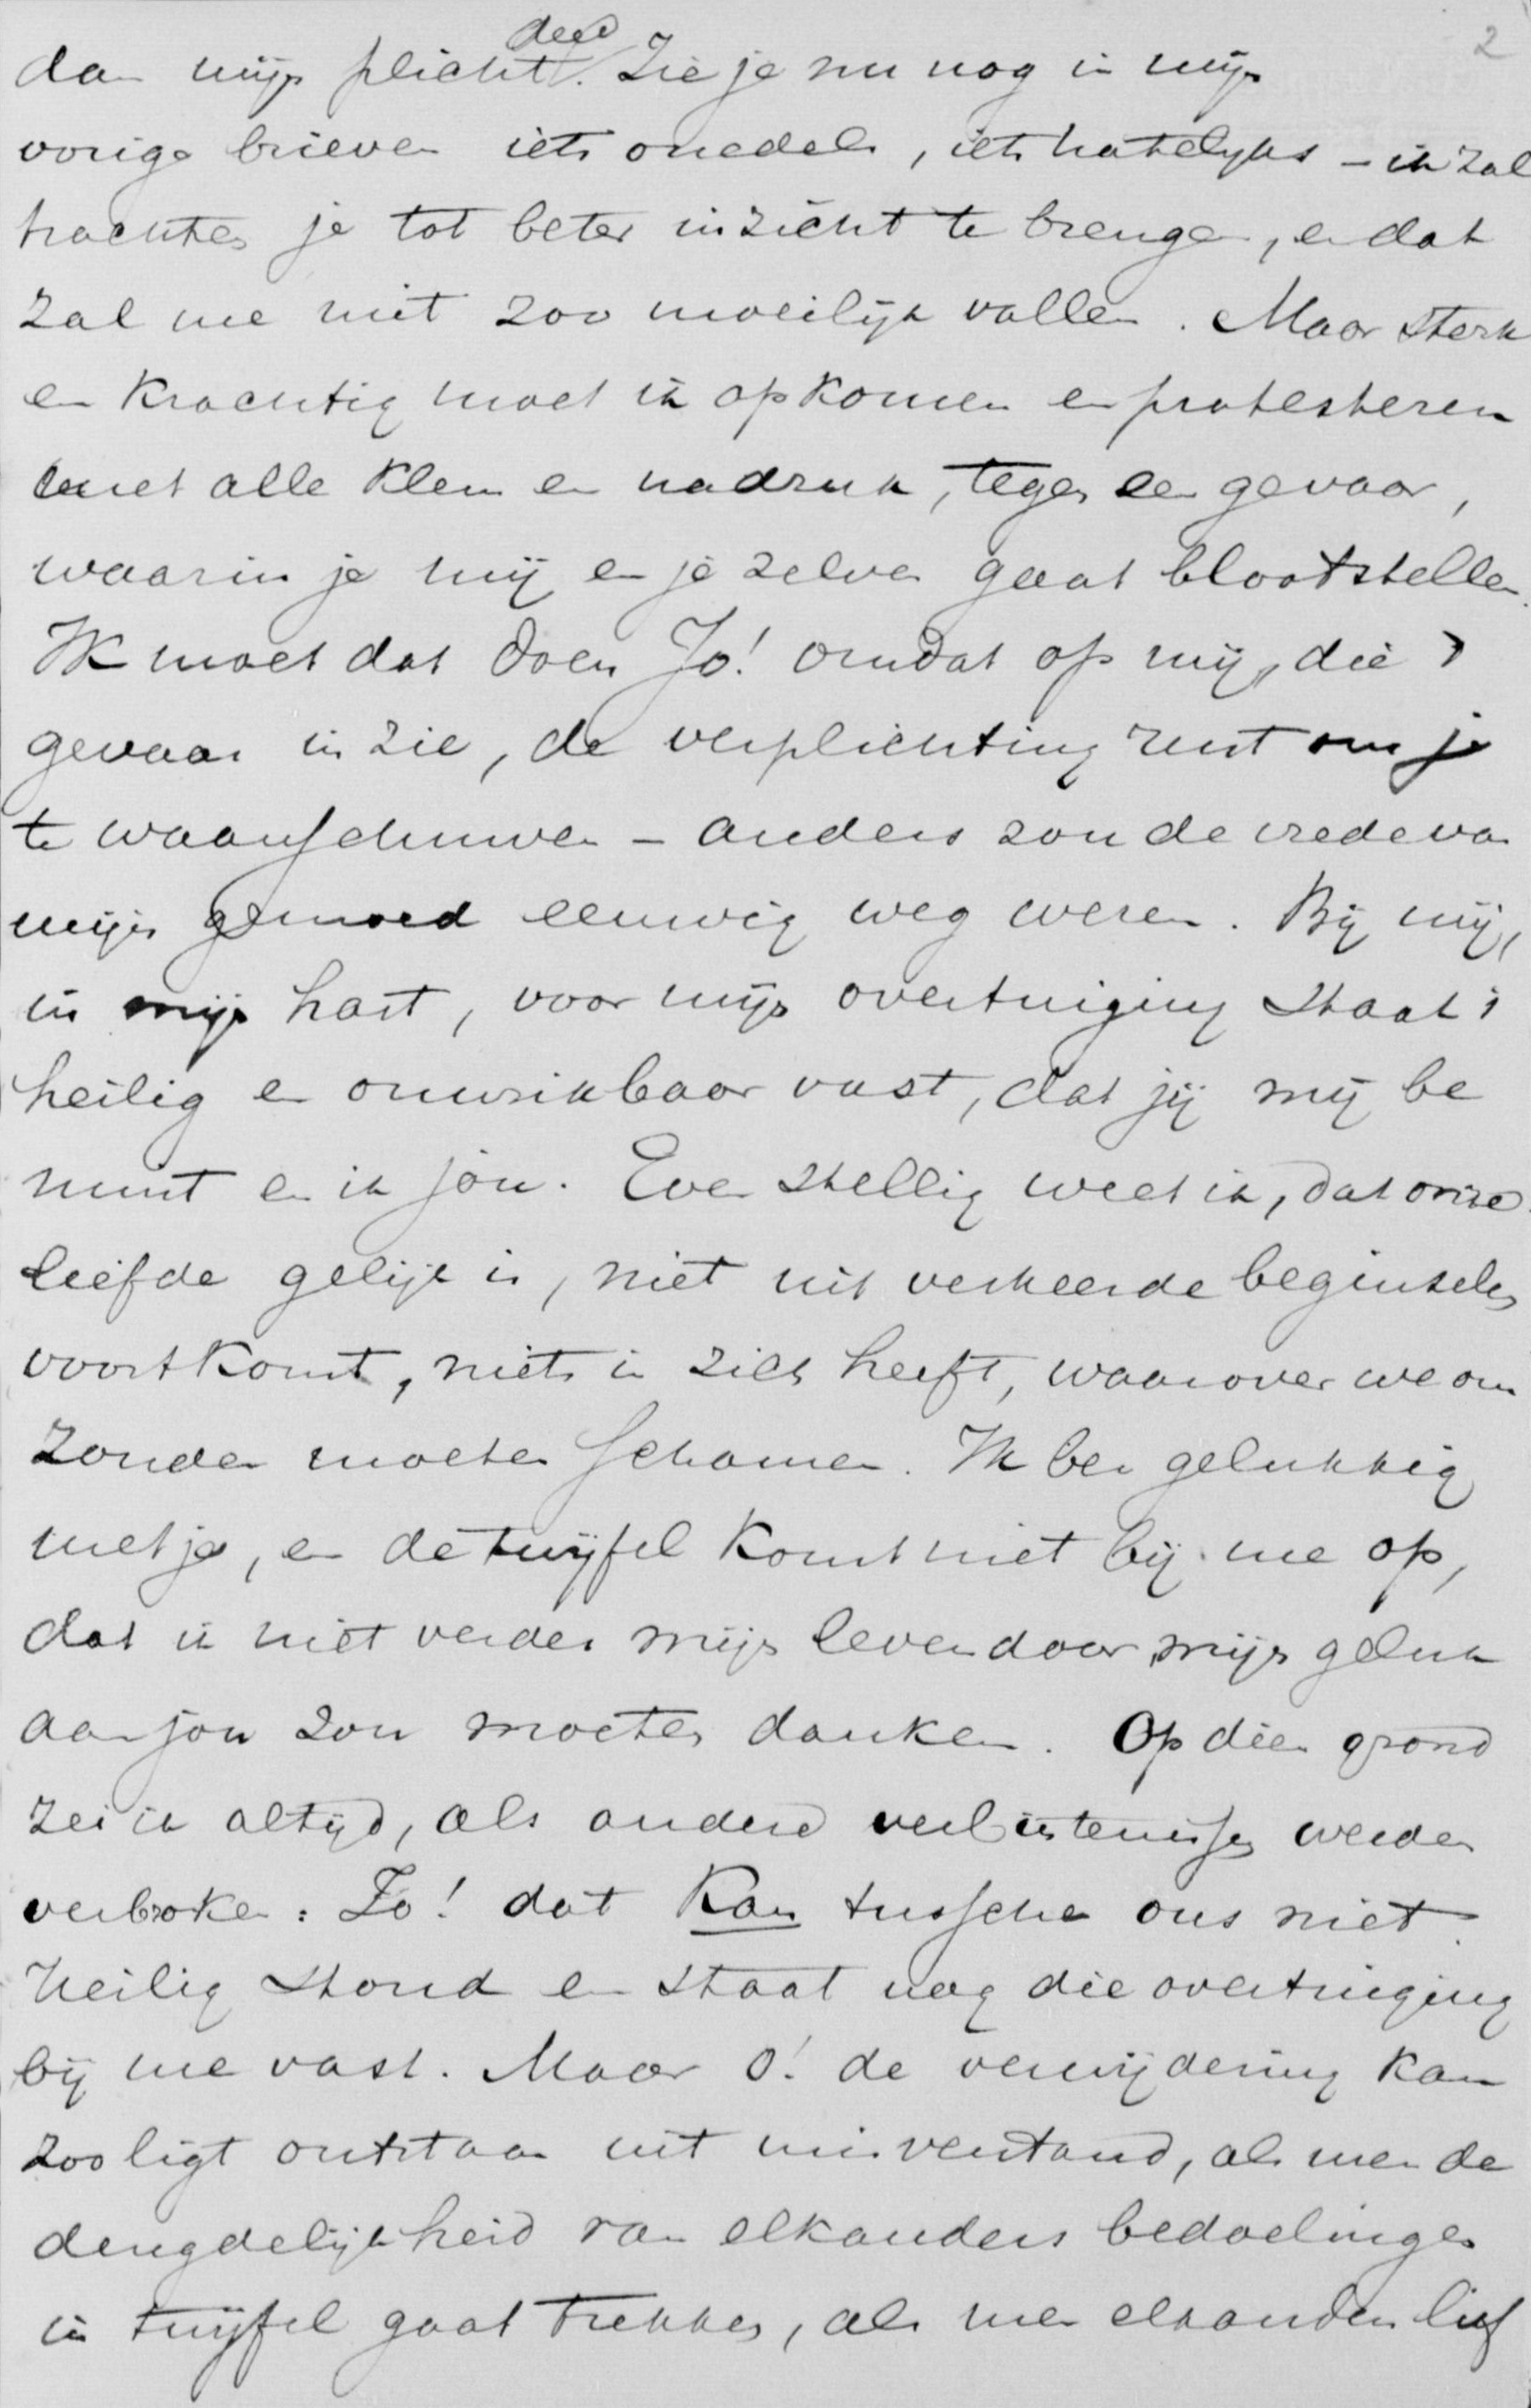 2
dan mijn plicht deed. Zie je nu nog in mijn
vorige brieven iets onedels, iets hatelijks – ik zal
trachten je tot beter inzicht te brengen, en dat
zal me niet zoo moeilijk vallen. Maar sterk
en krachtig moet ik opkomen en protesteren
met alle klem en nadruk, tegen een gevaar,
waarin je mij en je zelven gaat blootstellen.
Ik moet dat doen Jo! omdat op mij, die
gevaar in zie, de verplichting rust om je
te waarschuwen – anders zou de vrede van
mijn gemoed eeuwig weg wezen. Bij mij,
in mijn hart, voor mijn overtuiging staat
heilig en onwrikbaar vast, dat jij mij be
mint en ik jou. Even stellig weet ik, dat onze
liefde gelijk is, niet uit verkeerde beginselen
voortkomt, niets in zich heeft, waarover we ons
zouden moeten schamen. Ik ben gelukkig
met je, en de twijfel komt niet bij me op,
dat ik niet verder mijn leven door, mijn geluk
aan jou zou moeten danken. Op dien grond
zei ik altijd, als andere verbintenissen werden
verbroken: Jo! dat kan tusschen ons niet.
Heilig stond en staat nog die overtuiging
bij me vast. Maar o! de verwijdering kan
zoo ligt ontstaan uit misverstand, als men de
deugdelijkheid van elkanders bedoelingen
in twijfel gaat trekken, als men elkander lief